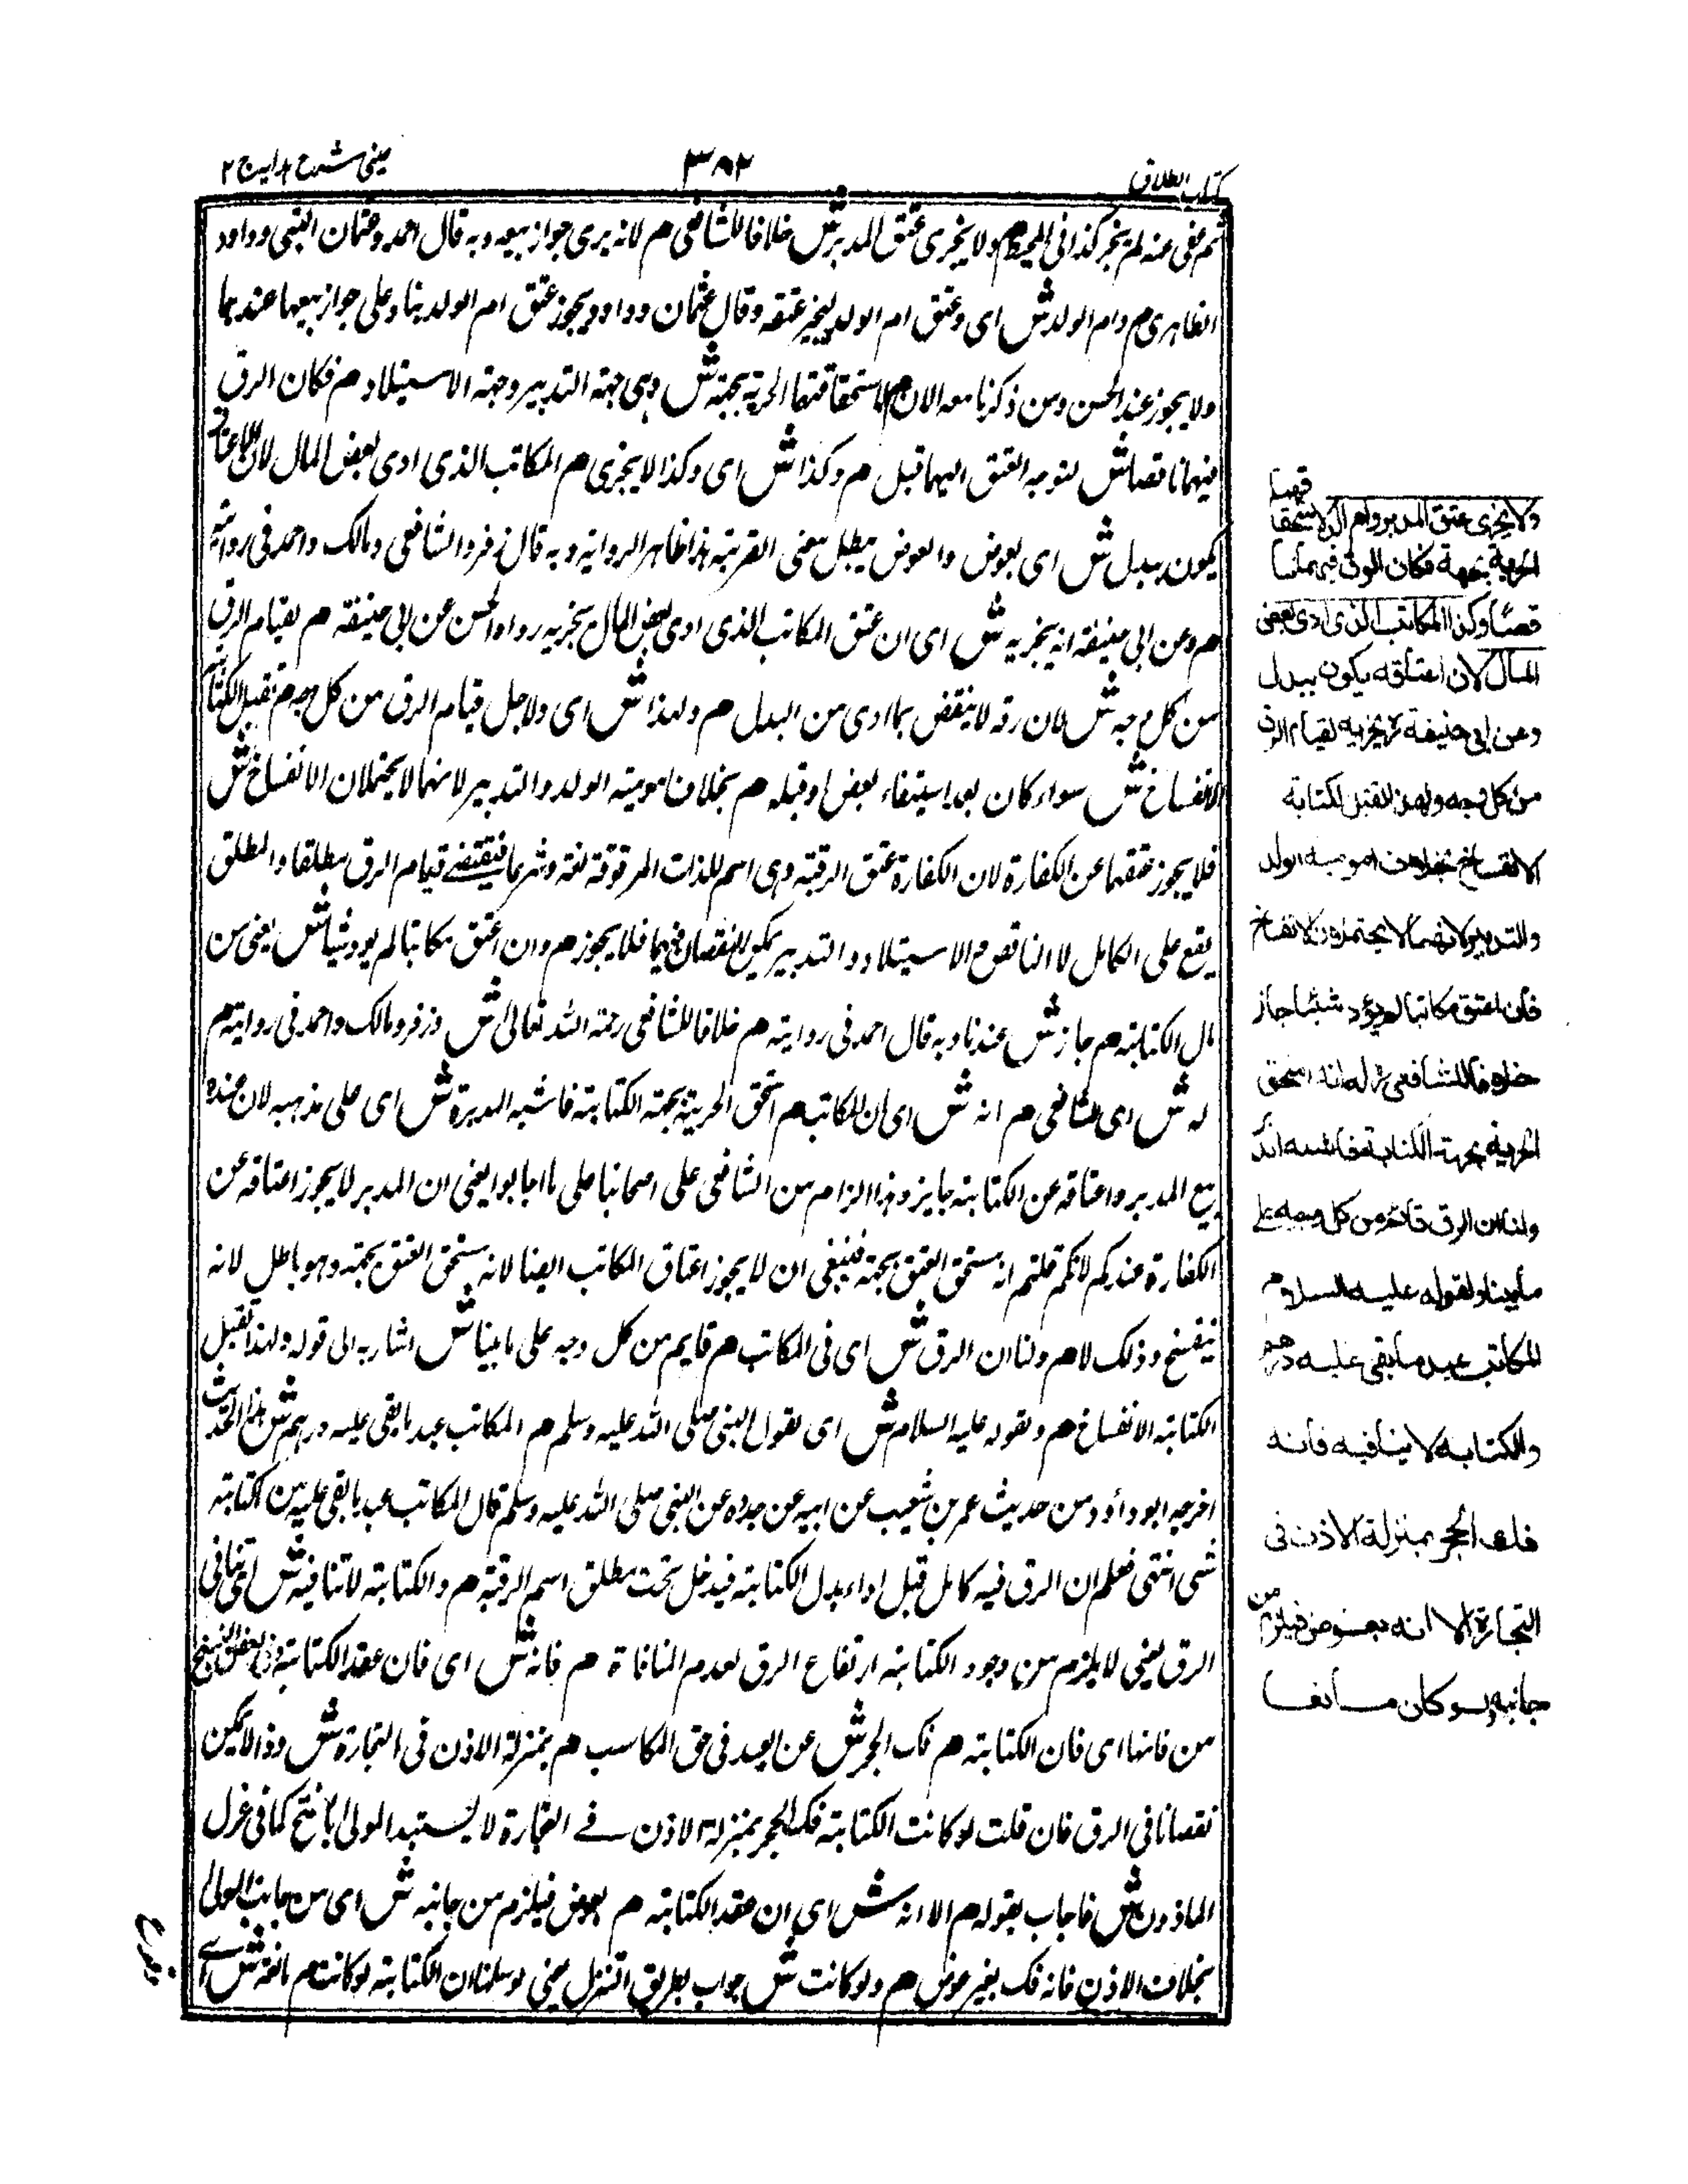 كتاب الطلاق
٣٨٢
عينى شرح هدايہ ج ٢
ثم بقى عنه لم يجز كذا فى المحيط م ولا يجزى عتق المدبر ش خلافا للشافعى م لانه يرى جواز بيعه وبه قال احمد وعثمان البتى وداود
الظاهرى م وام الولد ش اى وعتق ام الولد عتقه وقال عثمان وداود ويجوز عتق ام الولد بناء على جواز بيعها عندهما
ولا يجوز عند الحسن ومن ذكرنا معه الان م لاستحقاقهما الحرية بجهة ش وهى جهة التدبير وجهة الاستيلاد م فكان الرق
فيهما ناقصا ش لتوجه العتق اليهما قبل م وكذا ش اى وكذا لا يجزى م المكاتب الذى ادى بعض المال لان اعتاقه
يكون ببدل ش اى بعوض والعوض يبطل معنى القربة هذا ظاهر الرواية وبه قال زفر والشافعى ومالك واحمد فى رواية
م وعن ابى حنيفة انه يجزيه ش اى ان عتق المكاتب الذى ادى بعض المال يجزيه رواه الحسن عن ابى حنيفة م لقيام الرق
من كل وجه ش لان رقه لا ينقض بما ادى من البدل م ولهذا ش اى ولاجل قيام الرق من كل وجه م تقبل الكتابة
الانفساخ ش سواء كان بعد استيفاء بعضها وقبله م بخلاف امومية الولد والتدبير لانهما لا يحتملان الانفساخ ش
فلا يجوز عتقهما عن الكفارة لان الكفارة عتق الرقبة وهى اسم للذات المرقوقة لغة وشرعا فيقتضے قيام الرق مطلقا والمطلق
يقع على الكامل لا الناقص م الاستيلاد والتدبير يمكن النقصان فيهما فلا يجوز م وان اعتق مكاتبا لم يود شيئا ش يعنى من
مال الكتابة م جاز ش عندنا وبه قال احمد فى رواية م خلافا للشافعى رحمة الله تعالى ش وزفر ومالك واحمد فى رواية م
له ش اى للشافعى م انه ش اى ان المكاتب م استحق الحرية بجهة الكتابة فاشبه المدبر ة ش اى على مذهبه لان عنده
بيع المدبر واعتاقه عن الكتابة جايز وهذا الزام من الشافعى على اصحابنا على ما اجابوا يعنى ان المدبر لا يجوز اعتاقه عن
الكفارة عندكم لانكم قلتم انه مستحق العتق بجهة فينبغى ان لا يجوز اعتاق المكاتب ايضا لانه يستحق العتق بجهة وهو باطل لانه
ينفسخ وذلك لا م ولنا ان الرق ش اى فى المكاتب م قايم من كل وجه على ما بينا ش اشار به الى قوله ولهذا تقبل
الكتابة الانفساخ م ولقوله عليه السلام ش اى لقول النبى صلى الله عليه وسلم م المكاتب عبد ما بقى عليه درهم ش هذا الحديث
اخرجه ابو داؤد من حديث عمر بن شعيب عن ابيه عن جده عن النبى صلى الله عليه وسلم قال المكاتب عبد ما بقى عليه من كتابته
شى انتهى فعلم ان الرق فيه كامل قبل اداء بدل الكتابة فيدخل تحت مطلق اسم الرقبة م والكتابة لا تنافيه ش اى تنافى
الرق يعنى لا يلزم من وجود الكتابة ارتفاع الرق لعدم المنافاة م فانه ش اى فان عقد الكتابة وفى بعض النسخ
من فانها اى فان الكتابة م فك الحجر ش عن العبد فى حق المكاسب م بمنزلة الاذن فى التجارة ش وذا لا يمكن
نقصانا فى الرق فان قلت لو كانت الكتابة فك الحجر بمنزلة الاذن فے التجارة لا يستبد المولى بالفسخ كما فى عزل
الماذون ش فاجاب بقوله م الا انه ش اى ان عقد الكتابة م بعوض فيلزم من جانبه ش اى من جانب المولى
بخلاف الاذن فانه فك بغير عوض م ولو كانت ش جواب بطريق التنزل يعنى لو سلمنا ان الكتابة لو كانت م مانعة ش اے
ولا يجزى عتق المدبر وام الولد لاستحقاقهما
الحرية بجهة فكان الرق فيهما نا
قصا وكذا المكاتب الذى ادى بعض
المال لان اعتاقه يكون ببدل
وعن ابى حنيفة انه يجزيه لقيام الرق
من كل وجه ولهذا تقبل الكتابة
الانفساخ بخلاف امومية الولد
والتدبير لانهما لا يحتملان الانفساخ
فان اعتق مكاتبا لم يؤد شيئا جاز
خلافا للشافعى له انه استحق
الحرية بجهة الكتابة فاشبه المدبر
ولنا ان الرق قائم من كل وجه على
ما بينا ولقوله عليه السلام
المكاتب عبد ما بقى عليه درهم
والكتابه لا ينافيه فانه
فك الحجر بمنزلة الاذن فى
التجارة الا انه بعوض فيلزم من
جانبه ولو كان مانعا